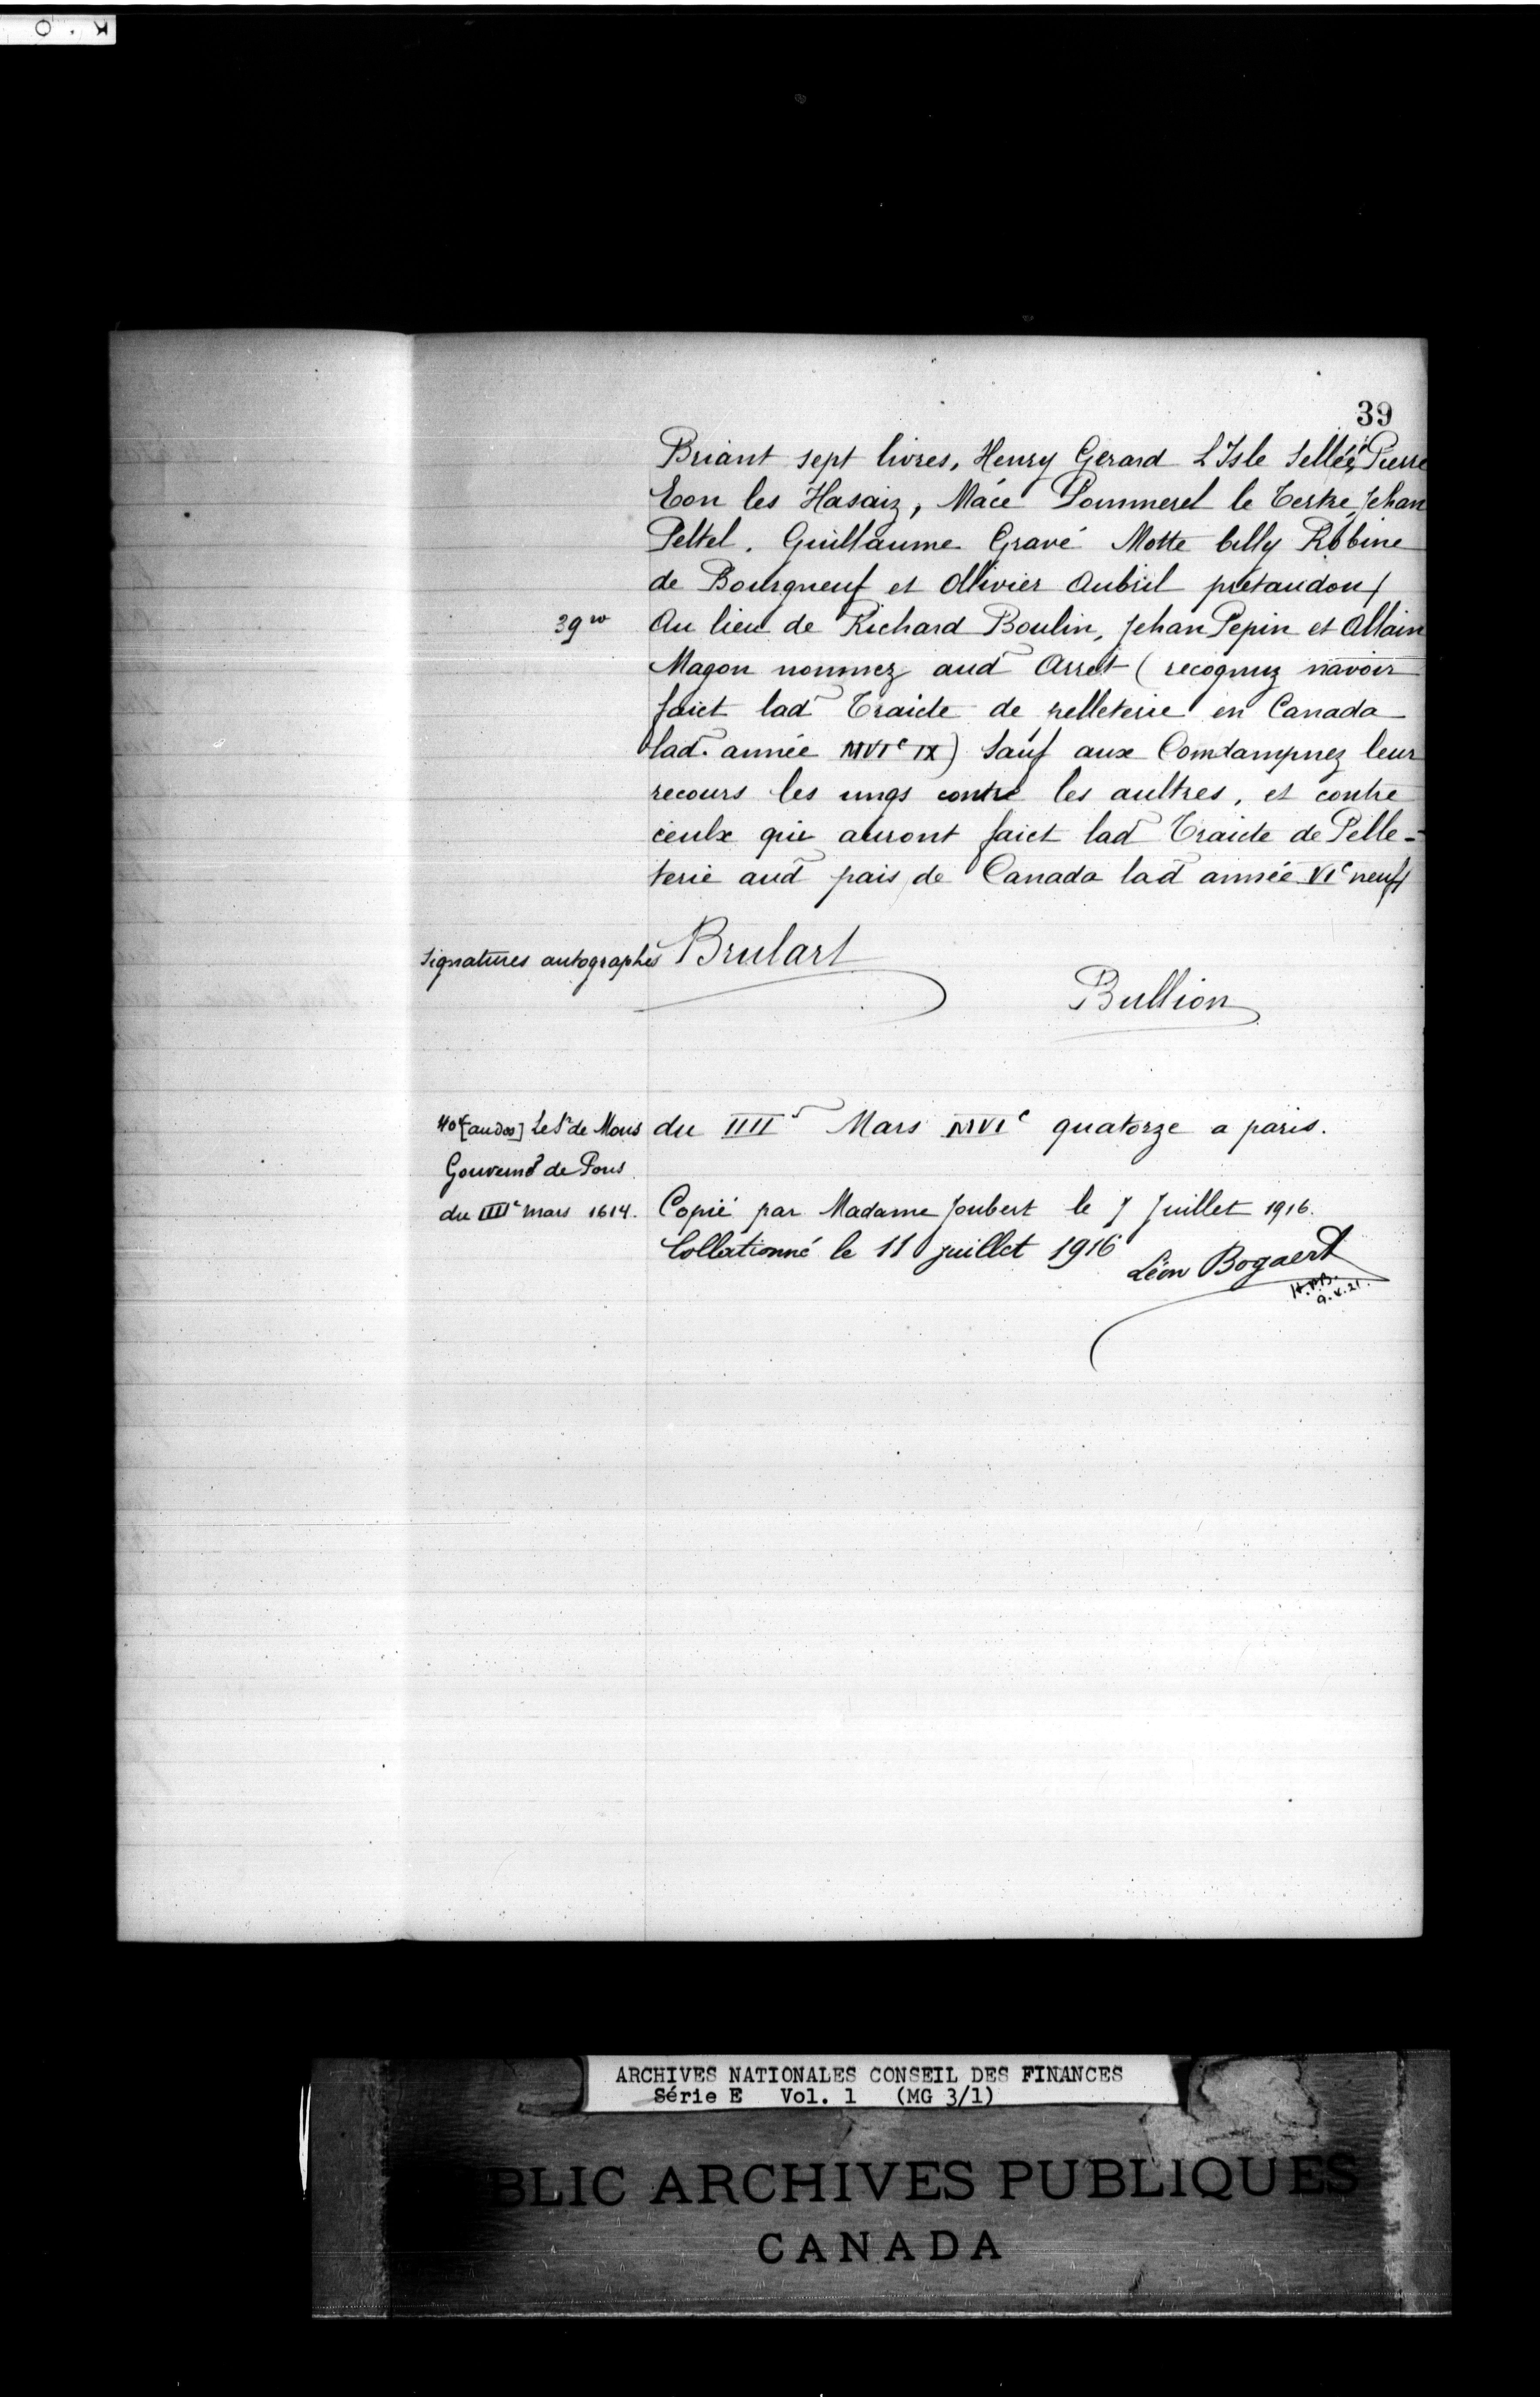 39
Briant sept livres, Henry Gerard L'Isle Sellée, Pierre
Eon les Hasaiz, Macé Pommerel le Tertre, Jehan
Peltel. Guillaume Gravé Motte billy Robine
de Bourgneuf et Ollivier Aubril pretandon/
39 vo
Au lieu de Richard Boulin, Jehan Pepin et Allain
Magon nommez aud Arret (recognuz navoir
faict lad Traicte de pelleterie en Canada
lad. année MVIc IX) Sauf aux Comdampnez leur
recours les ungs contre les aultres, et contre
ceulx qui auront faict lad Traicte de Pelle-
terie aud pais de Canada lad année VIc neuf/
Signatures autographes
Brulart
Bullion
40 [au dos] Le Sr de Mons
Gouvernr de Pons
du IIIIe mars 1614.
du IIIIe Mars MVIc quatorze a paris.
Copié par Madame Joubert le 7 Juillet 1916.
Collationné le 11 juillet 1916
Léon Bogaert
9.V.21.
ARCHIVES NATIONALES CONSEIL DES FINANCES
Série E Vol. 1 (MG 3/1)
BLIC ARCHIVES PUBLIQUES
CANADA